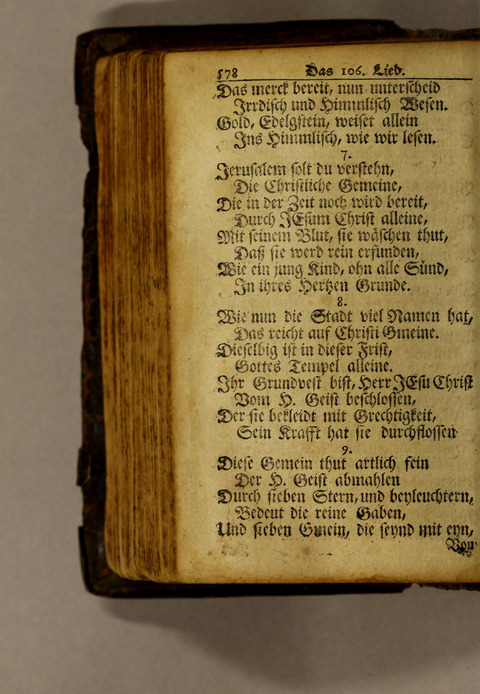 578 Das 106. Lied.
Das merck bereit, nun unterscheid
Irrdisch und Himmlisch Wesen.
Gold, Edelgstein, weiset allein
Ins Himmlisch, wie wir lesen.
7.
Jerusalem solt du verstehn,
Die Christliche Gemeine,
Die in der Zeit noch wird bereit,
Durch JEsum Christ alleine,
Mit seinem Blut, sie wäschen thut,
Daß sie werd rein erfunden,
Wie ein jung Kind, ohn alle Sünd,
In ihres Hertzen Grunde.
8.
Wie nun die Stadt viel Namen hat,
Das reicht auf Christi Gmeine.
Dieselbig ist in dieser Frist,
Gottes Tempel alleine.
Ihr Grundvest bist, Herr JEsu Christ
Vom H. Geist beschlossen,
Der sie bekleidt mit Grechtigkeit,
Sein Krafft hat sie durchflossen
9.
Diese Gemein thut artlich fein
Der H. Geist abmahlen
Durch sieben Stern, und beyleuchtern,
Bedeut die reine Gaben,
Und sieben Gmein, die seynd mit eyn,
Von